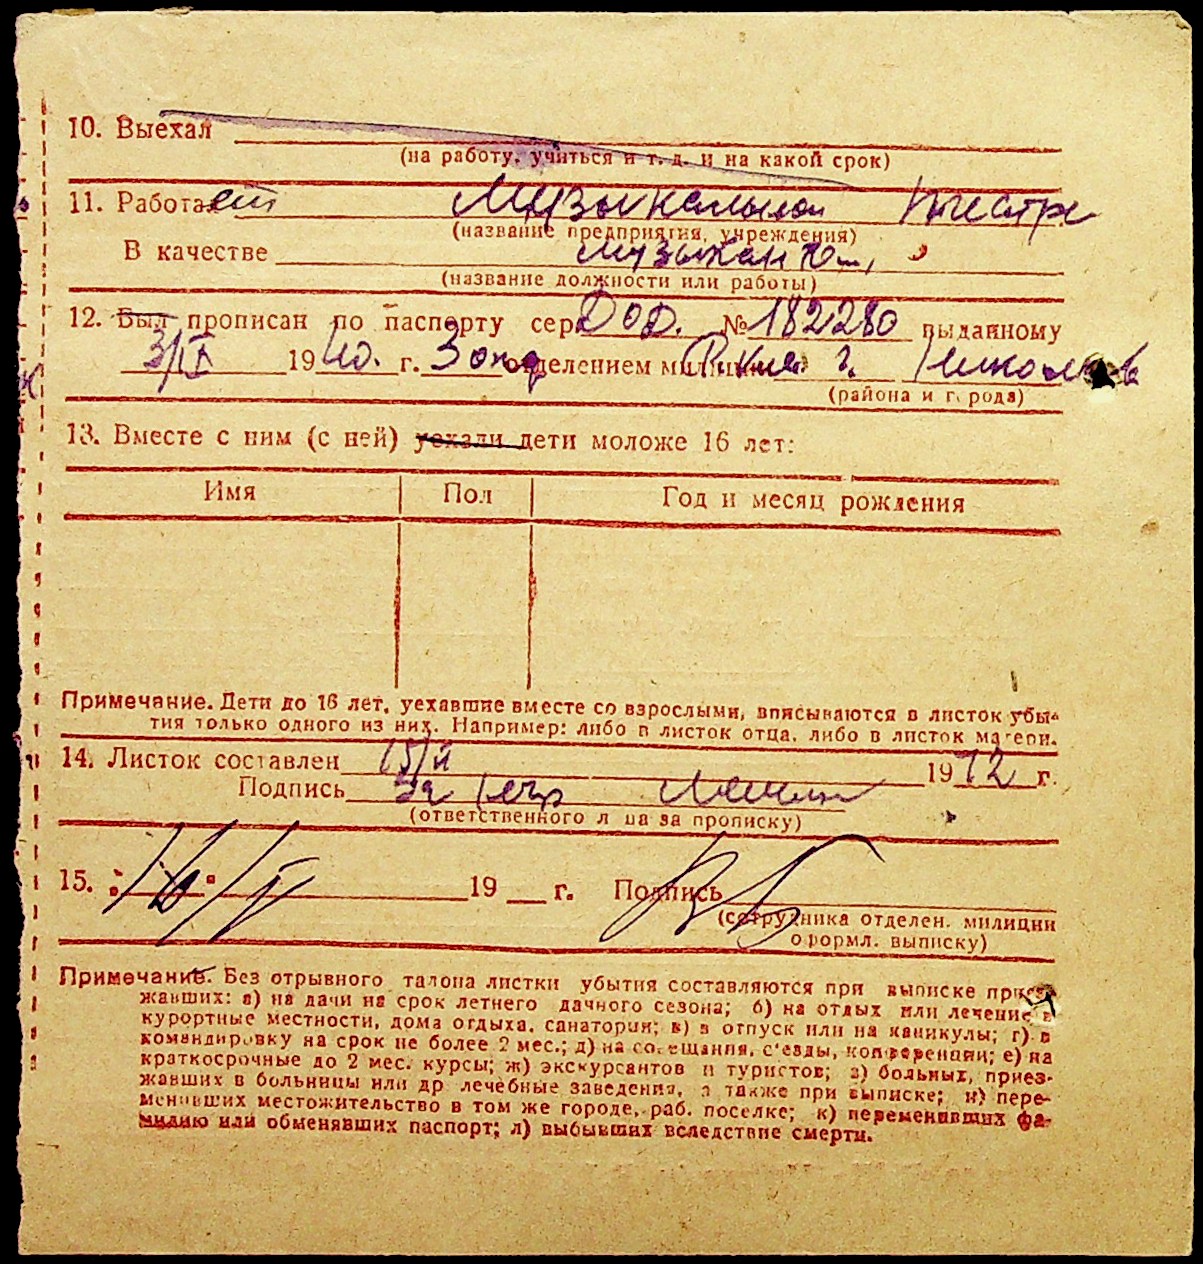 10. Выехал
(на работу, учиться и т. д. и на какой срок)
11. Работает Музыкальном театре
(название предприятия, учреждения)
В качестве музыкантом,
(название должности или работы)
12. Был прописан по паспорту сер. № 182280 выданному
3/IX 19 г. 3 отделением милиции г. Николаев
(района и города)
13. Вместе с ним (с ней) уехали дети моложе 16 лет:
Имя Пол Год и месяц рождения
Примечание. Дети до 16 лет, уехавшие вместе со взрослыми, вписываются в листок убы-
тия только одного из них. Например: либо в листок отца, либо в листок матери.
14. Листок составлен 15/II 1972 г.
Подпись
(ответственного лица за прописку)
15. 19 г. Подпись
(сотрудника отделен. милиции
оформл. выписку)
Примечание. Без отрывного талона листки убытия составляются при выписке приез-
жавших: а) на дачи на срок летнего дачного сезона; б) на отдых или лечение в
курортные местности, дома отдыха, санатории; в) в отпуск или на каникулы; г) в
командировку на срок не более 2 мес.; д) на совещания, с'езды, конференции; е) на
краткосрочные до 2 мес. курсы; ж) экскурсантов и туристов; з) больных, приез-
жавших в больницы или др лечебные заведения, а также при выписке; и) пере-
менивших местожительство в том же городе, раб. поселке; к) переменивших фа-
милию или обменявших паспорт; л) выбывших вследствие смерти.